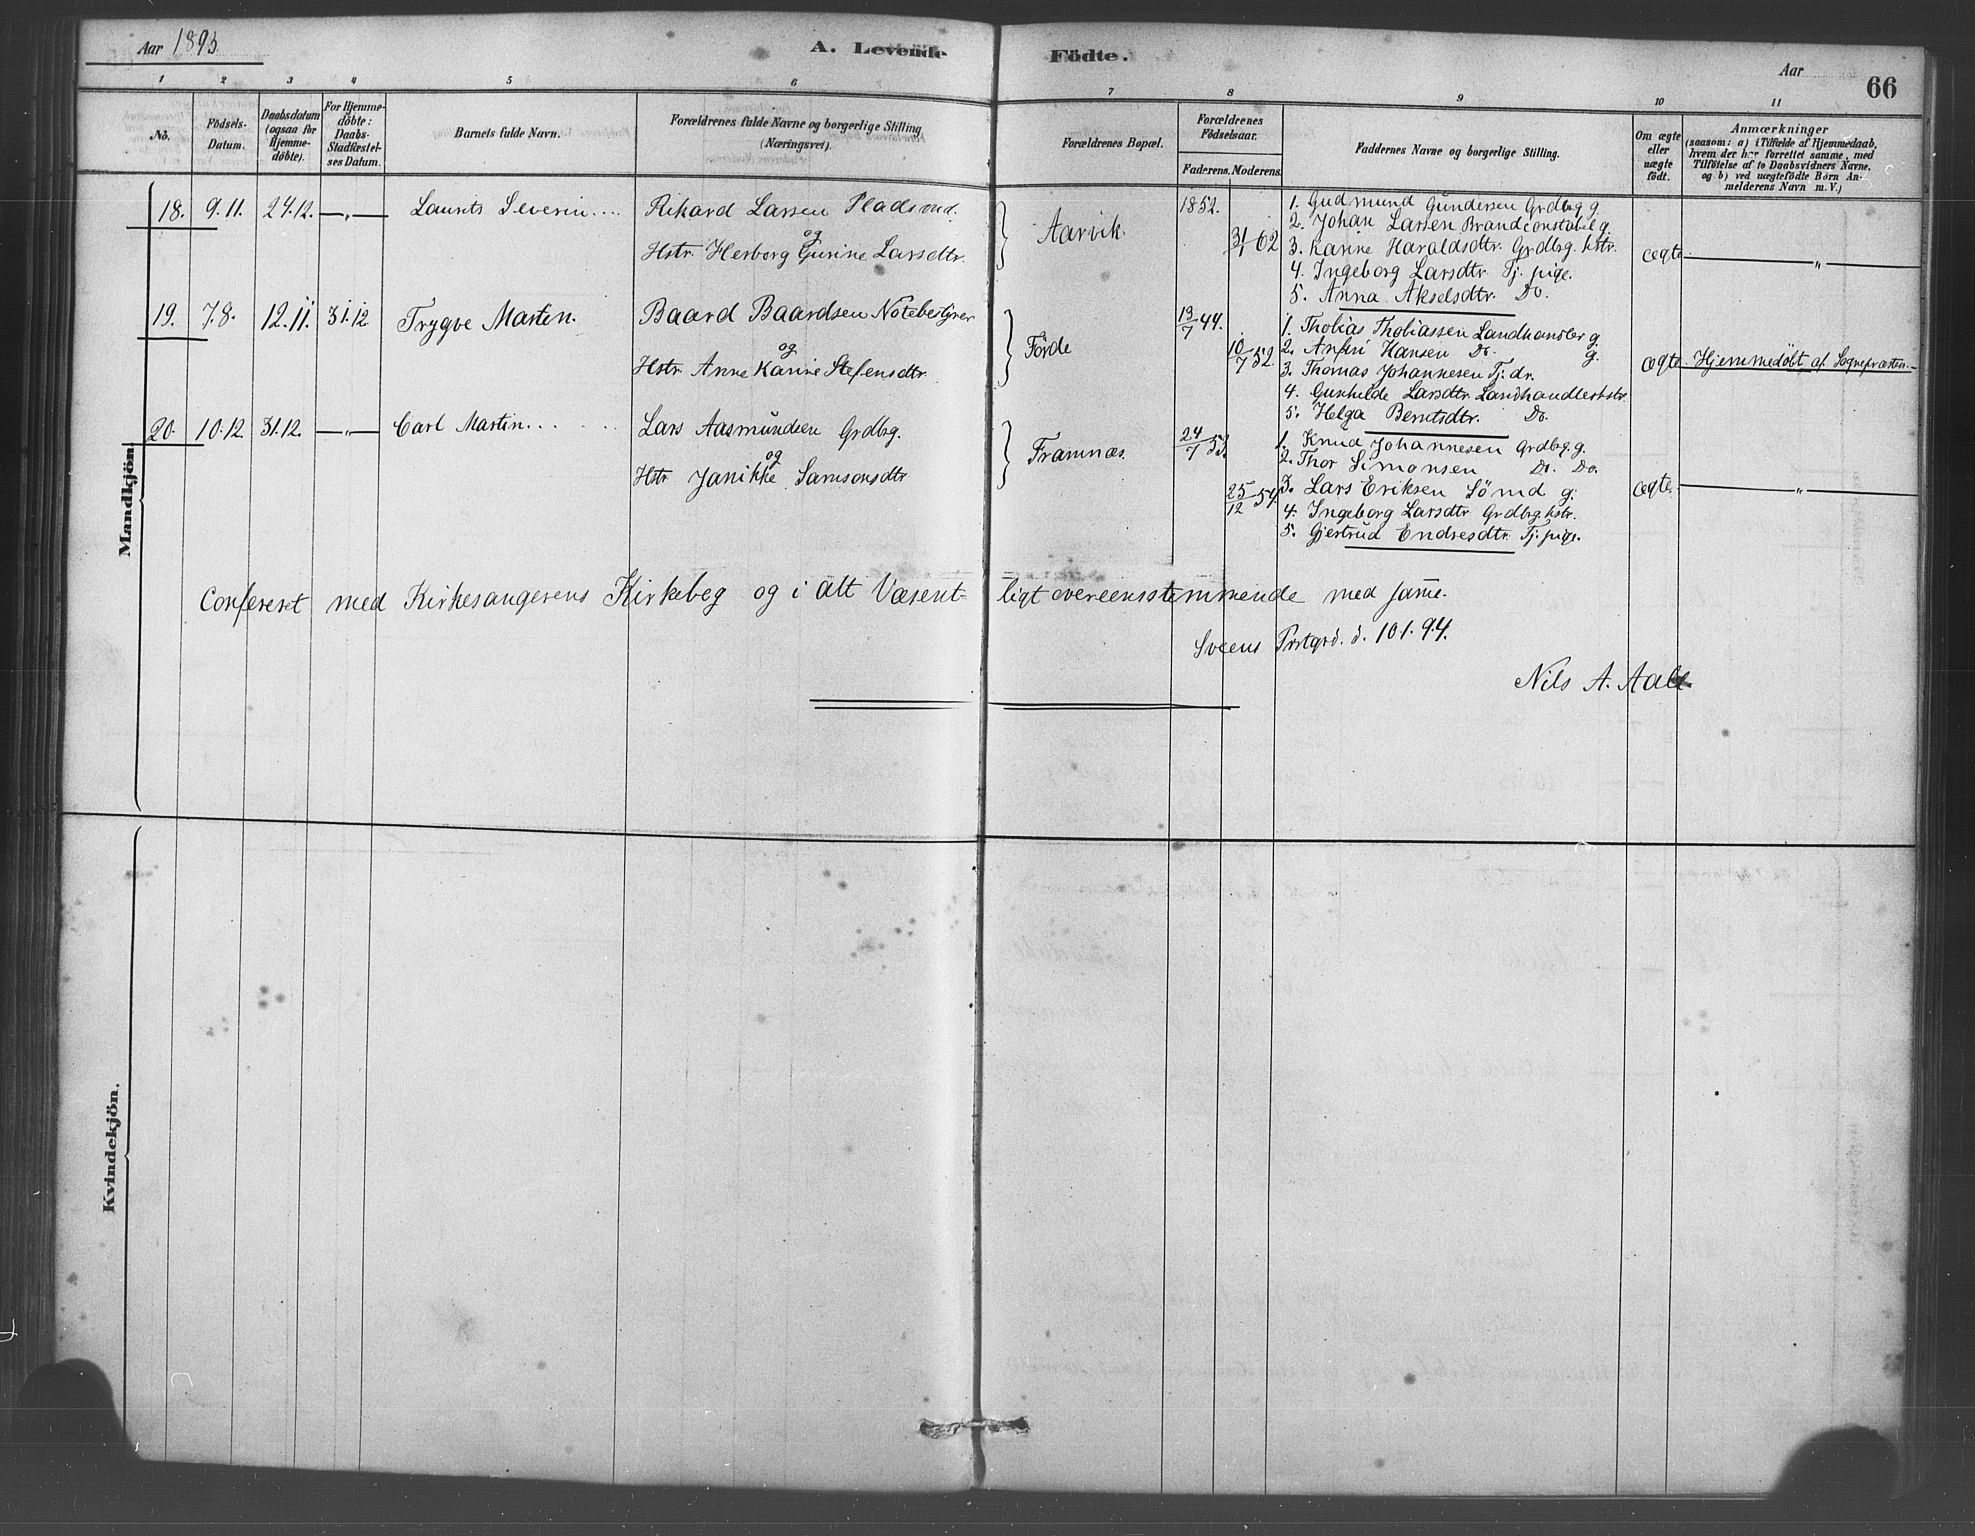 Aar 1893.
A. Levende Födte.
Aar
66
1 2 3 4 5 6 7 8 9 10 11
No.
Födsels-
Datum.
Daabsdatum
(ogsaa for
Hjemme-
döbte).
For Hjemme-
döbte:
Daabs-
Stadfæstel-
ses Datum.
Barnets fulde Navn.
Forældrenes fulde Navne og borgerlige Stilling
(Næringsvei).
Forældrenes Bopæl.
Forældrenes
Födselsaar.
Faderens. Moderens.
Faddernes Navne og borgerlige Stilling.
Om ægte
eller
uægte
födt.
Anmærkninger
(saasom: a) i Tilfælde af Hjemmedaab,
hvem der har forrettet samme, med
Tilföielse af to Daabsvidners Navne,
og b) ved uægtefödte Börn An-
melderens Navn m. V.)
Mandkjön.
18. 9.11. 24.12. —„— Laurits Severin.... Rikard Larsen Pladsmd.
og
Hstr. Herborg Gurine Larsdtr.
Aarvik.
1852.
31/1 62
1. Gudmund Gundersen Grdbrg g.
2. Johan Larsen Brandconstabel g.
3. Karine Haraldsdtr. Grdbrg. hstr.
4. Ingeborg Larsdtr. Tj. pige.
5. Anna Akselsdtr. Do.
ægte
„
19. 7.8. 12.11. 31.12 Trygve Marten. Baard Baardsen Notebestyrer
og
Hstr. Anne Karine Stefensdtr.
Förde
13/7 44.
10/7 52.
1. Thobias Thobiassen Landhandler g.
2. Hansen Do. g.
3. Thomas Johannesen Tj. dr.
4. Gunhilde Larsdtr. Landhandlerhstr.
5. Helga Berntsdtr. Do.
ægte Hjemmedöbt af Sognepræsten.
20. 10.12. 31.12. —„— Carl Martin.... Lars Aasmundsen Grdbrg.
og
Hstr Janikke Samsonsdtr
Framnæs.
24/7 53.
25/12 54.
1. Knud Johannesen Grdbrg. g.
2. Thor Simonsen Do. Do.
3. Lars Eriksen Sömd g.
4. Ingeborg Larsdtr. Grdbrg. hstr.
5. Gjertrud Endresdtr. Tj. pige.
ægte.
„
Confereret med Kirkesangerens Kirkebog og i alt Væsent-ligt overeensstemmende med samme.
Sveens Prstgrd. d. 10.1.94.
Nils A. Aall
Kvindekjön.